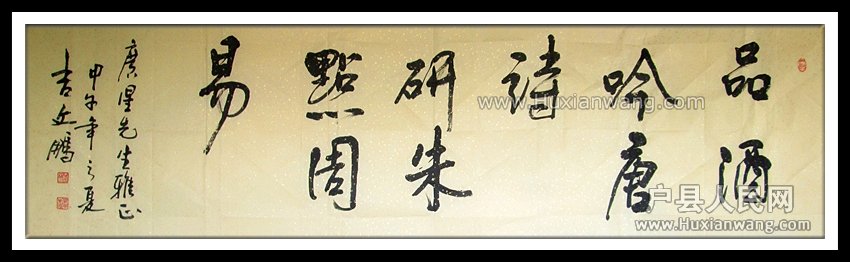 品酒
吟唐
詩
研朱
點周
易
廣星先生雅正
甲午年之夏
www.Huxianwang.com
户县人民网
www.Huxianwang.com